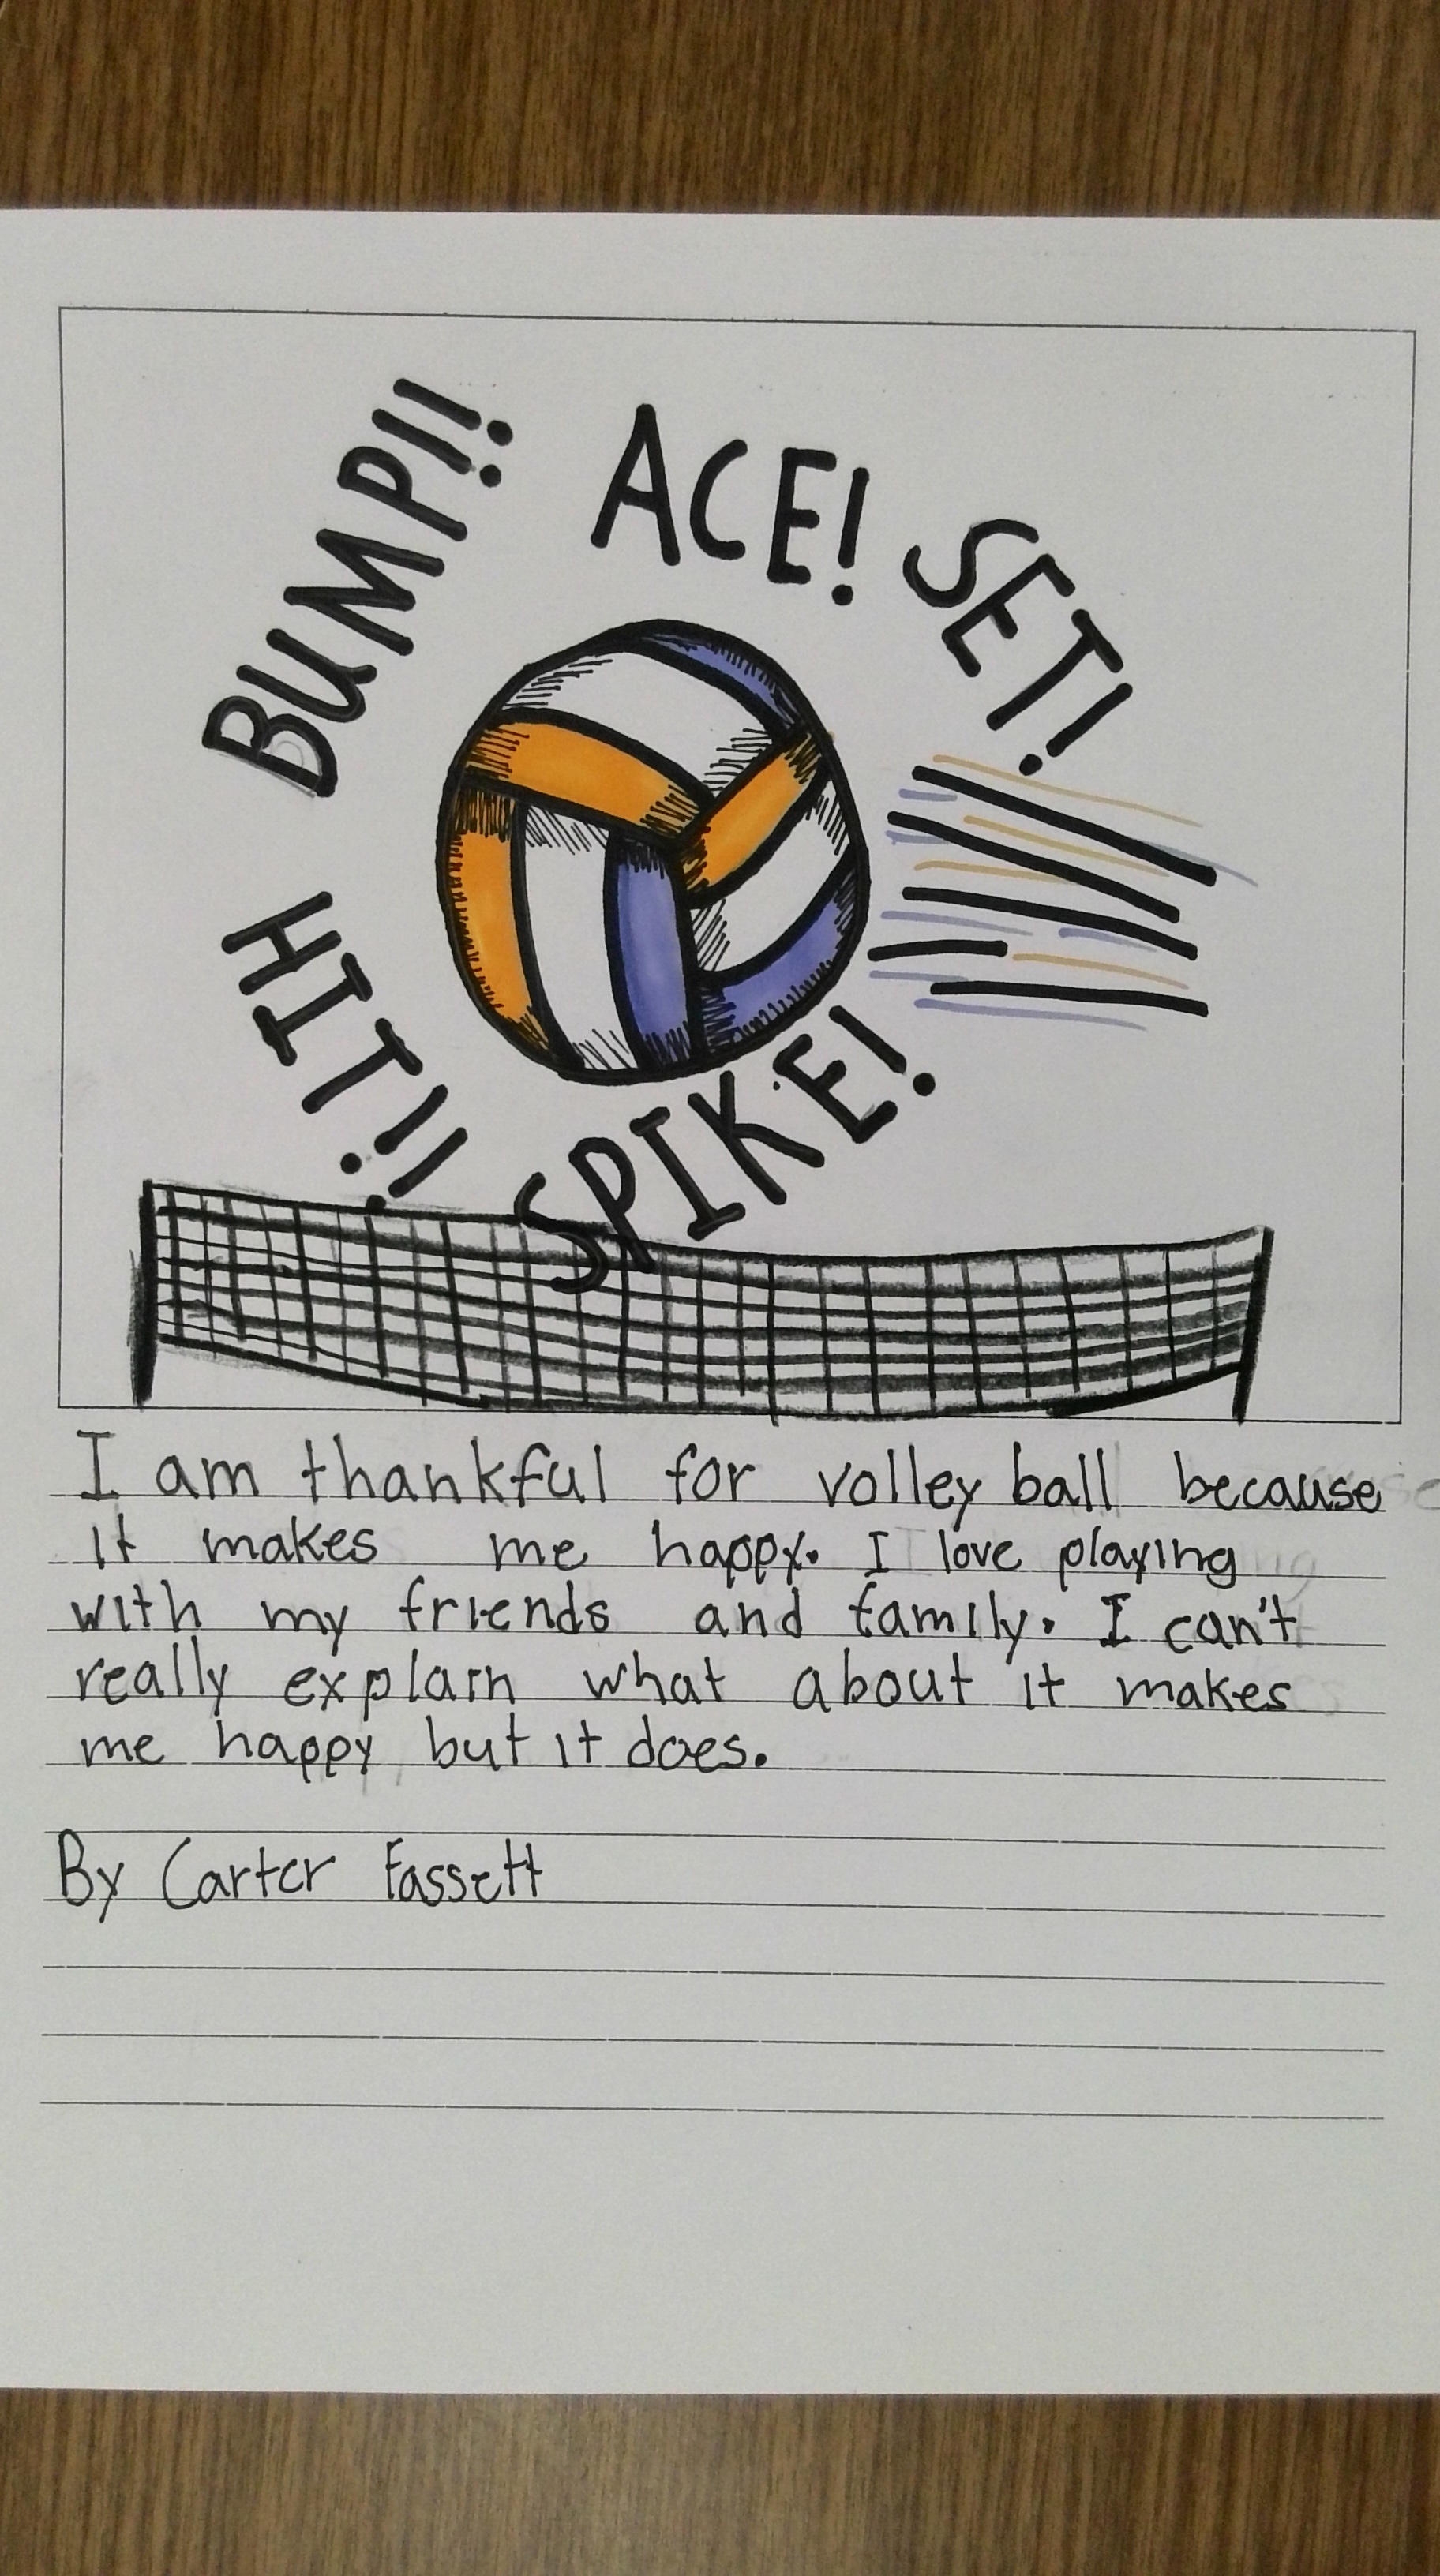 BUMP!!
ACE!
SET!
HIT!!
SPIKE!
I am thankful for volley ball because
it makes me happy. I love playing
with my friends and family. I can't
really explain what about it makes
me happy but it does.
By Carter Fassett